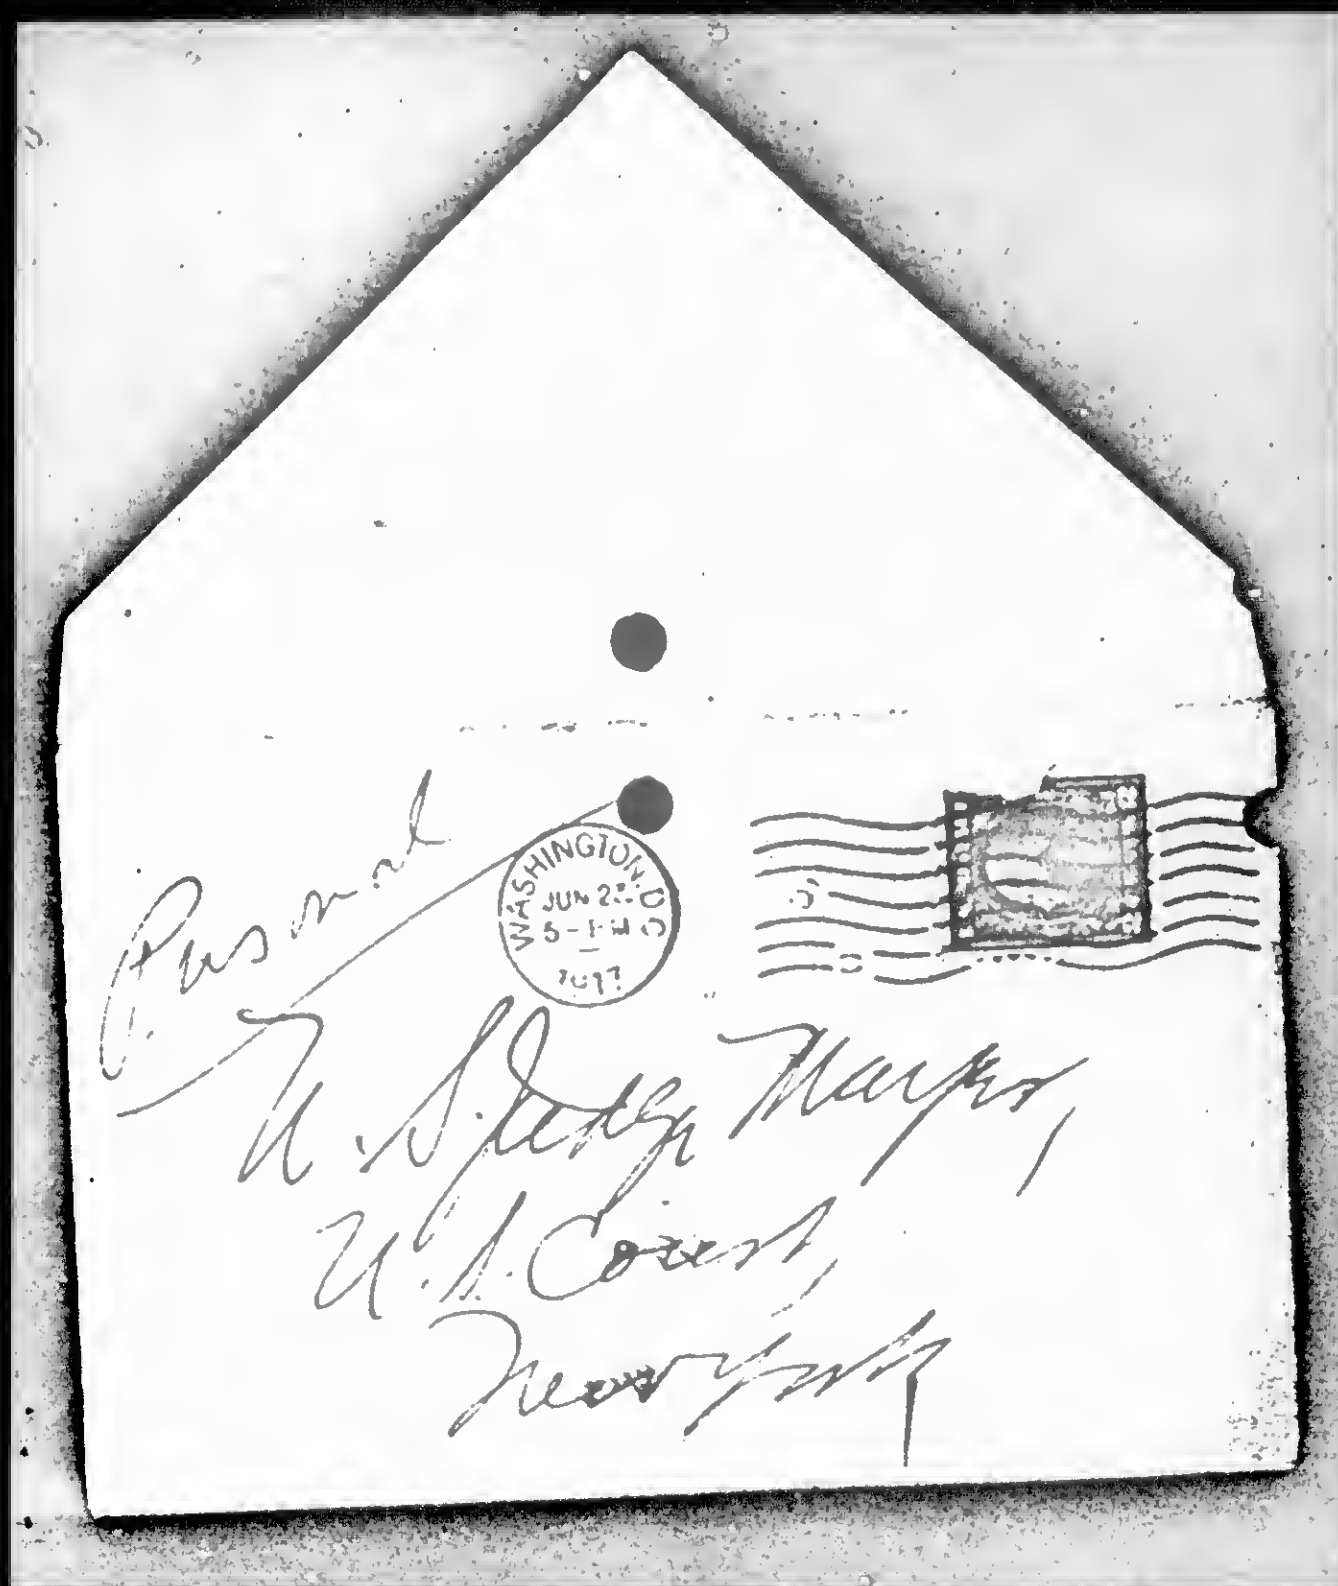 Personal
WASHINGTON, D.C.
JUN 2
5 - PM
U. S. Judge Mayer,
U. S. Court,
New York